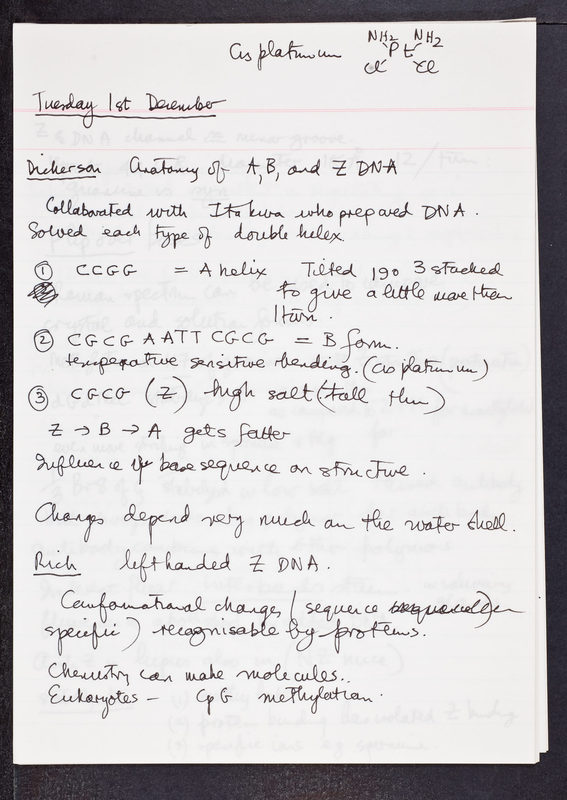 cis platinum NH2 NH2
Pt
Cl Cl
Tuesday 1st December
Dickerson Anatomy of A, B, and Z DNA
Collaborated with Itakura who prepared DNA.
Solved each type of double helex.
① CCGG = A helix Tilted 19o 3 stacked
to give a little more then
1 turn.
② CGCG AATT CGCG = B form.
temperature sensitive bending. (cis platinum)
③ CGCG (Z) high salt (tall thin)
Z → B → A gets fatter
Influence of base sequence on structure.
Changes depend very much on the water shell.
Rich left handed Z DNA.
Conformational changes (sequence
specific) recognisable by proteins.
Chemistry can make molecules.
Eukaryotes - CpG methylation.